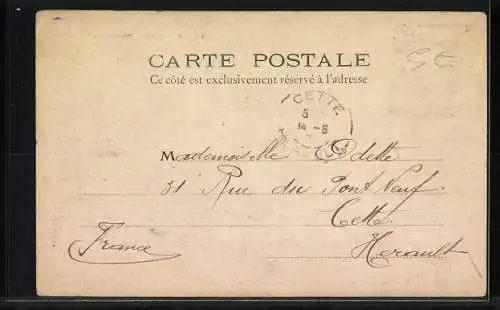 CARTE POSTALE
Ce côté est exclusivement réservé à l'adresse
CETTE
5
14 - 5
Mademoiselle Odette
31 Rue du Pont Neuf
Cette
Herault
France